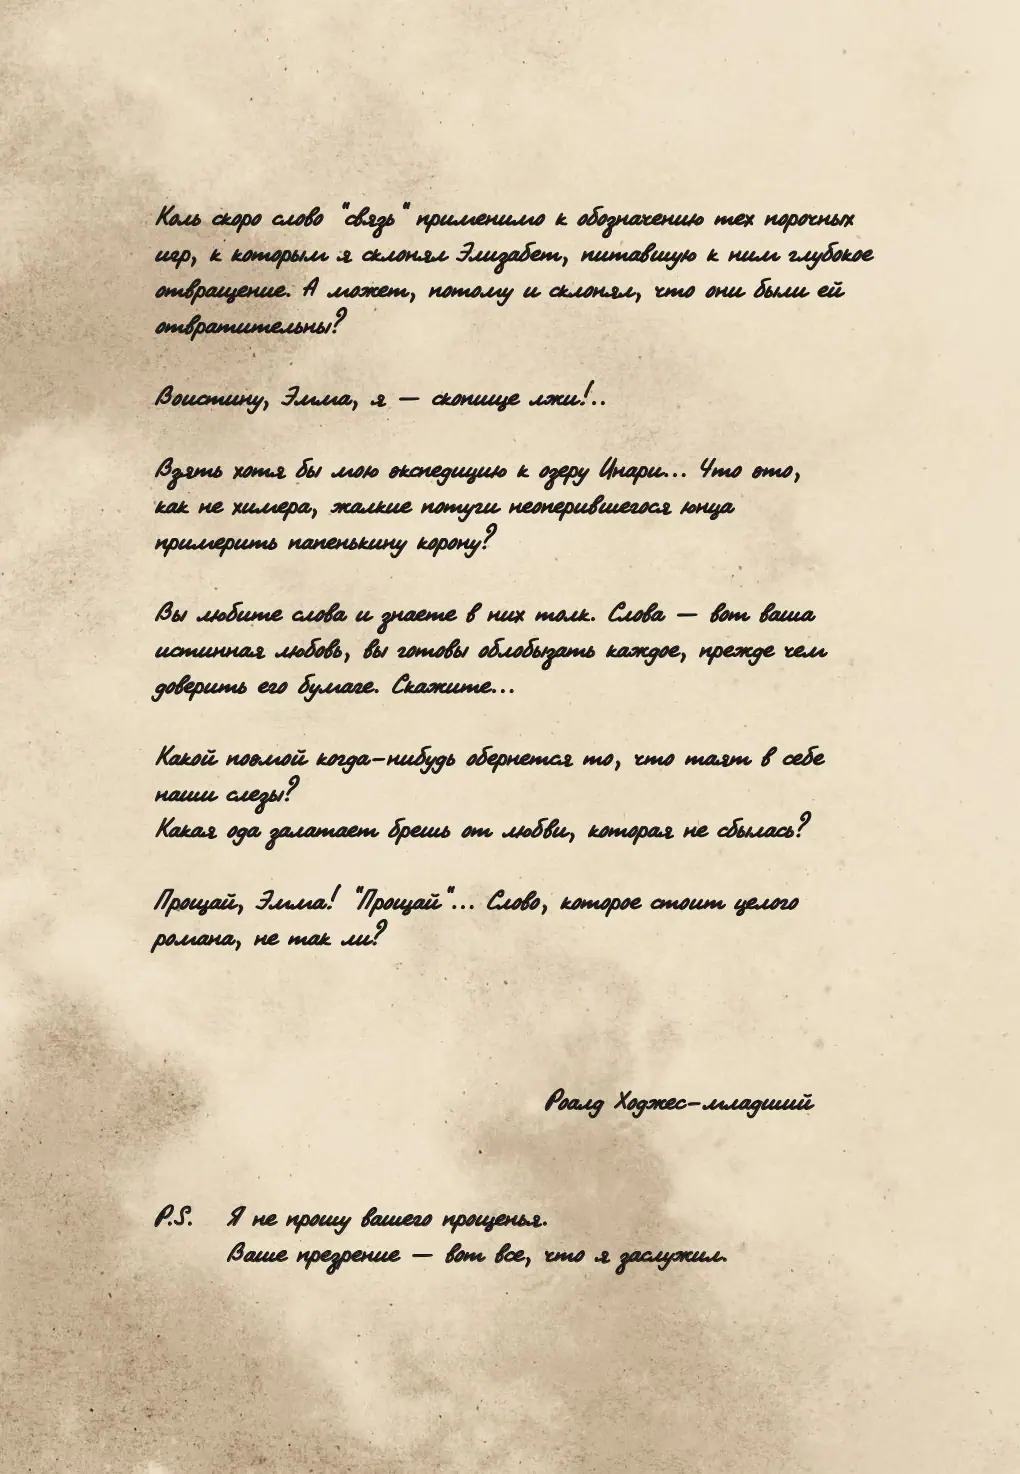 Коль скоро слово "связь" применимо к обозначению тех порочных
игр, к которым я склонял Элизабет, питавшую к ним глубокое
отвращение. А может, потому и склонял, что они были ей
отвратительны?
Воистину, Эмма, я — скопище лжи!..
Взять хотя бы мою экспедицию к озеру Инари... Что это,
как не химера, жалкие потуги неоперившегося юнца
примерить папенькину корону?
Вы любите слова и знаете в них толк. Слова — вот ваша
истинная любовь, вы готовы облобызать каждое, прежде чем
доверить его бумаге. Скажите...
Какой поэмой когда-нибудь обернется то, что таят в себе
наши слезы?
Какая ода залатает брешь от любви, которая не сбылась?
Прощай, Эмма! "Прощай"... Слово, которое стоит целого
романа, не так ли?
Роалд Ходжес-младший
P.S. Я не прошу вашего прощенья.
Ваше презрение — вот все, что я заслужил.